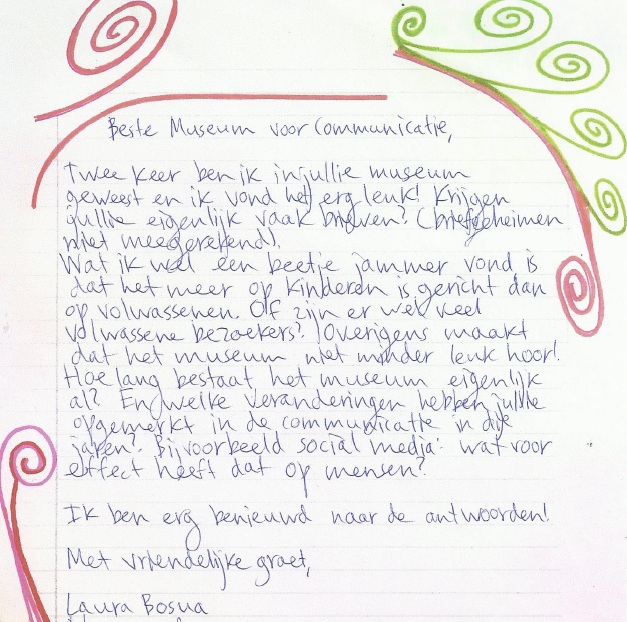 Beste Museum voor Communicatie,
Twee keer ben ik in jullie museum
geweest en ik vond het erg leuk! Krijgen
jullie eigenlijk vaak brieven? (briefgeheimen
niet meegerekend).
Wat ik wel een beetje jammer vond is
dat het meer op kinderen is gericht dan
op volwassenen. Of zijn er wel veel
volwassene bezoekers? Overigens maakt
dat het museum niet minder leuk hoor!
Hoe lang bestaat het museum eigenlijk
al? En welke veranderingen hebben jullie
opgemerkt in de communicatie in die
jaren? Bijvoorbeeld social media: wat voor
effect heeft dat op mensen?
Ik ben erg benieuwd naar de antwoorden!
Met vriendelijke groet,
Laura Bosua